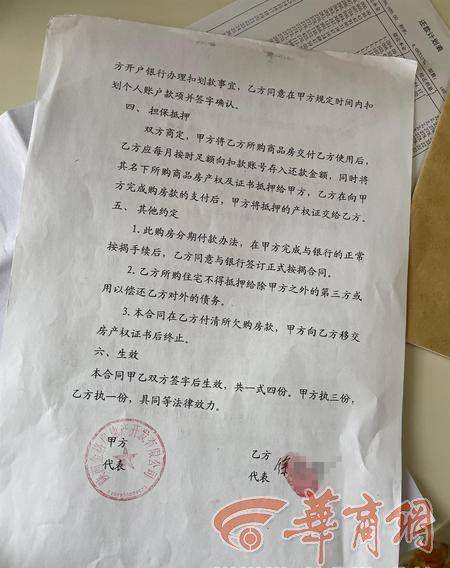 还款计划表
方开户银行办理扣划款事宜，乙方同意在甲方规定时间内扣
划个人账户款项并签字确认。
四、担保抵押
双方商定，甲方将乙方所购商品房交付乙方使用后，
乙方应每月按时足额向扣款账号存入还款金额，同时将
其名下所购商品房产权及证书抵押给甲方，乙方在向甲
方完成购房款的支付后，甲方将抵押的产权证交给乙方。
五、其他约定
1.此购房分期付款办法，在甲方完成与银行的正常
按揭手续后，乙方同意与银行签订正式按揭合同。
2.乙方所购住宅不得抵押给除甲方之外的第三方或
用以偿还乙方对外的债务。
3.本合同在乙方付清所欠购房款，甲方向乙方移交
房产权证书后终止。
六、生效
本合同甲乙双方签字后生效，共一式四份。甲方执三份，
乙方执一份，具同等法律效力。
甲方
代表
乙方
代表
華商網